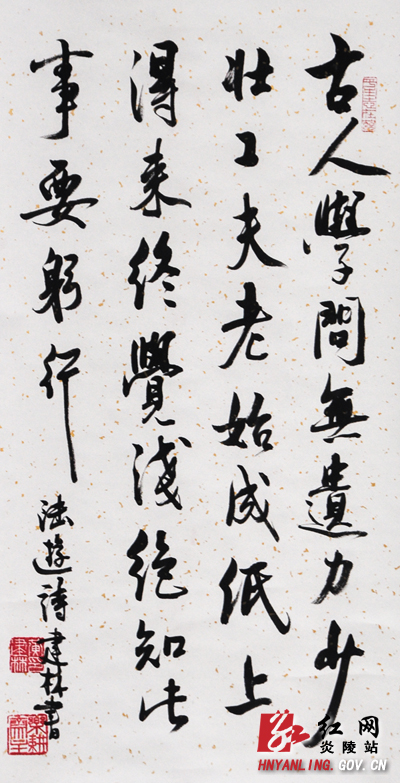 古人學問無遺力少
壯工夫老始成紙上
得来終覺淺絕知此
事要躬行
陸游詩建林書
红网
炎陵站
HNYANLING.GOV.CN